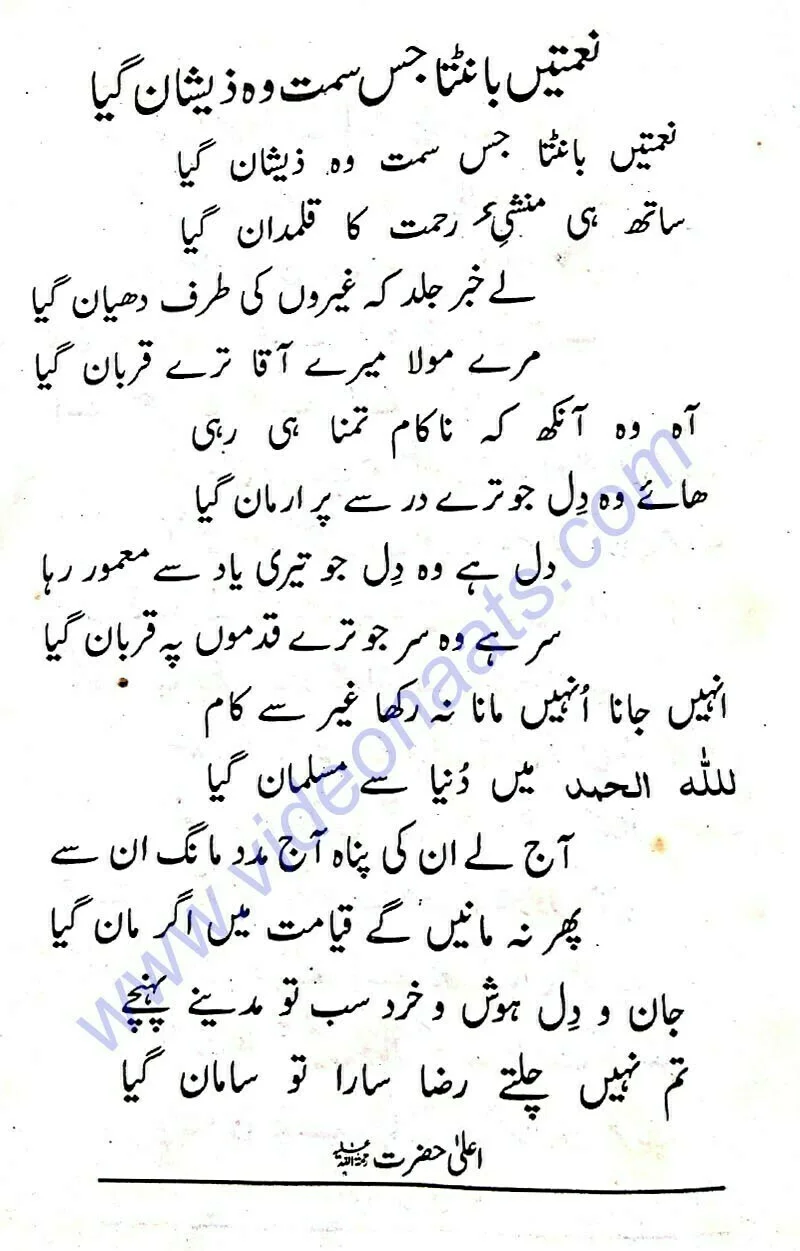 نعمتیں بانٹتا جس سمت وہ ذیشان گیا
نعمتیں بانٹتا جس سمت وہ ذیشان گیا
ساتھ ہی منشیِٔ رحمت کا قلمدان گیا
لے خبر جلد کہ غیروں کی طرف دھیان گیا
مرے مولا میرے آقا ترے قربان گیا
آہ وہ آنکھ کہ ناکام تمنا ہی رہی
ھائے وہ دِل جو ترے در سے پر ارمان گیا
دل ہے وہ دِل جو تیری یاد سے معمور رہا
سر ہے وہ سر جو ترے قدموں پہ قربان گیا
انہیں جانا اُنہیں مانا نہ رکھا غیر سے کام
للّٰہ الحمد میں دُنیا سے مسلمان گیا
آج لے ان کی پناہ آج مدد مانگ ان سے
پھر نہ مانیں گے قیامت میں اگر مان گیا
جان و دِل ہوش و خرد سب تو مدینے پہنچے
تم نہیں چلتے رضا سارا تو سامان گیا
اعلیٰ حضرت رحمۃ اللہ علیہ
www.videonaats.com